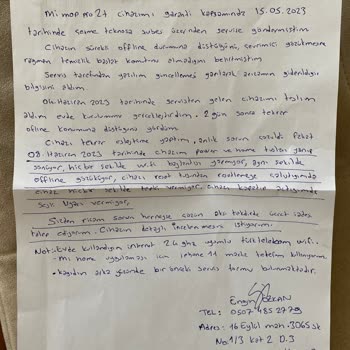 Mi mop pro 2+ cihazımı garanti kapsamında 15.05.2023
tarihinde Teknosa şubesi üzerinden servise göndermiştim
Cihazın sürekli offline durumuna düştüğünü, çevrimiçi gözükmesine
rağmen temizlik başlat komutu almadığını belirtmiştim
Servis tarafından yazılım güncellemesi yapılarak arızanın giderildiği
bilgisini aldım.
06 Haziran 2023 tarihinde servisten gelen cihazımı teslim
aldım evde kurulumunu gerçekleştirdim, 2 gün sonra tekrar
offline konumuna düştüğünü gördüm.
Cihazı tekrar eşleştirme yaptım, anlık sorun çözüldü fakat
08 Haziran 2023 tarihinde cihazım power ve home tuşları yanıp
sönüyor, hiç bir şekilde wi.fi bağlantısı görmüyor, aynı şekilde
offline gözüküyor, cihazı reset tuşundan resetlemeye çalıştığımda
cihaz hiçbir şekilde tepki vermiyor, cihazı kapatıp açtığımda
sesli uyarı vermiyor.
Sizden ricam sorun her neyse çözün aksi takdirde ücret iadesi
talep ediyorum. Cihazın detaylı incelenmesini istiyorum.
Not: Evde kullandığım internet 2.4 ghz uyumlu türk telekom wifi.
- Mi home uygulaması için iphone 11 marka telefon kullanıyorum.
- kağıdın arka yüzünde bir önceki servis formu bulunmaktadır.
Engin ÖZKAN
TEL: 0507 485 2779
Adres: 16 Eylül mah. 3065 st
No: 1/3 kat 2 D.3